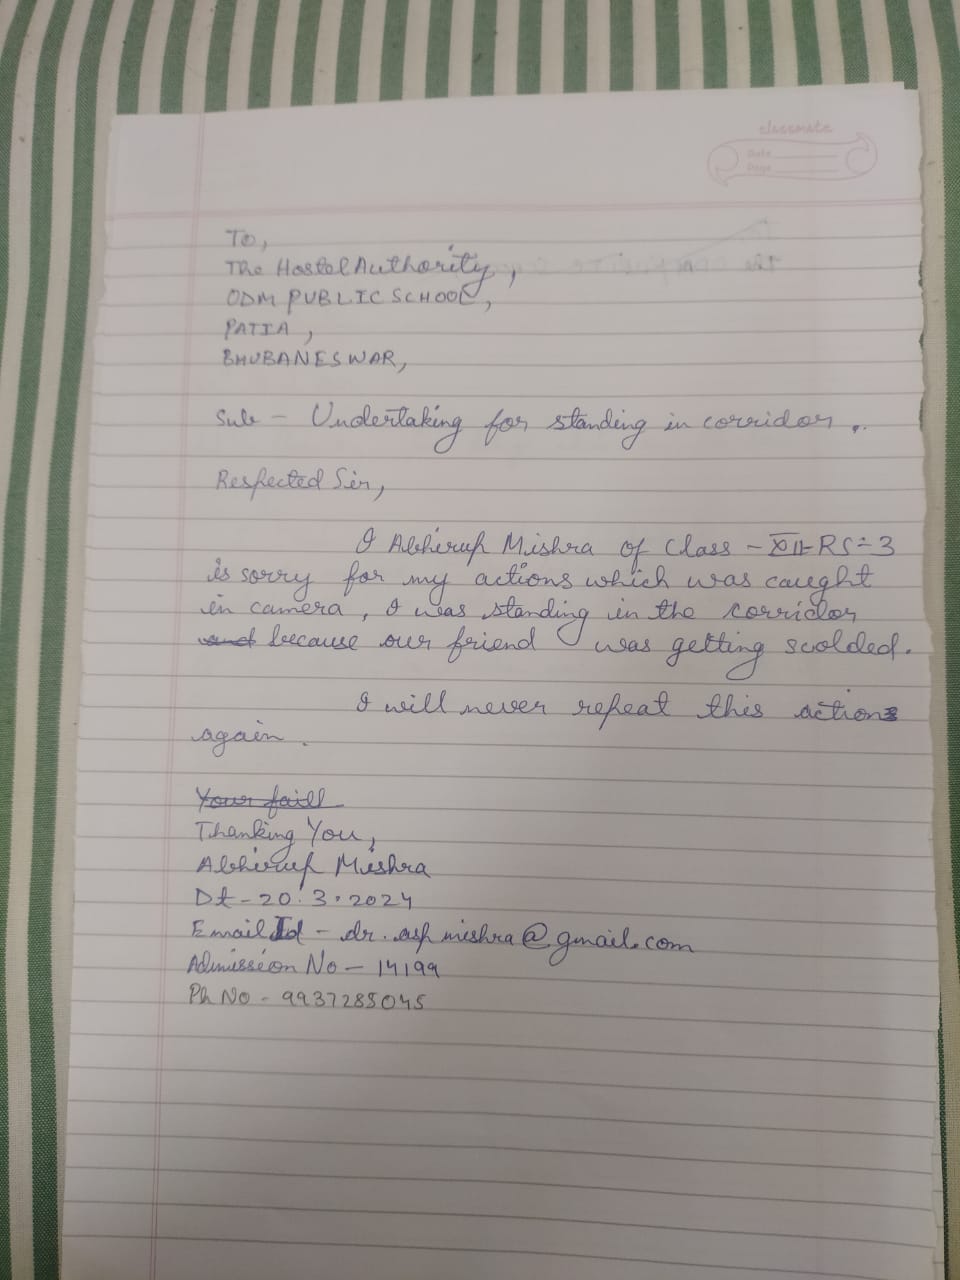 classmate
Date
Page
To,
The Hostel Authority,
ODM PUBLIC SCHOOL,
PATIA,
BHUBANESWAR,
Sub - Undertaking for standing in corridor.
Respected Sir,
I Abhirup Mishra of Class - XII-RS-3
is sorry for my actions which was caught
in camera, I was standing in the corridor
and because our friend was getting scolded.
I will never repeat this actions
again.
Your faill
Thanking You,
Abhirup Mishra
Dt - 20.3.2024
Email Id - dr.asp.mishra@gmail.com
Admission No - 14199
Ph No - 9937285045